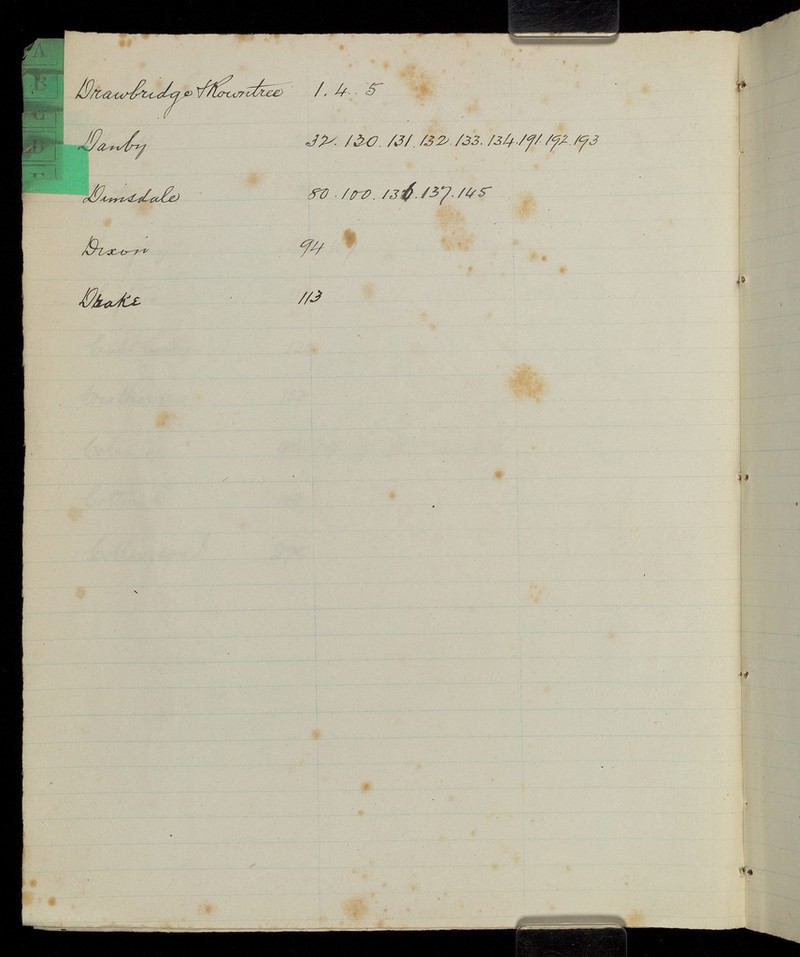 A
B
C
D
E
Drawbridge & Rowntree 1. 4. 5
Danby 32. 130. 131. 132. 133. 134. 191. 192. 193
Dimsdale 80. 100. 136. 137. 145
Dixon 94
Drake 113